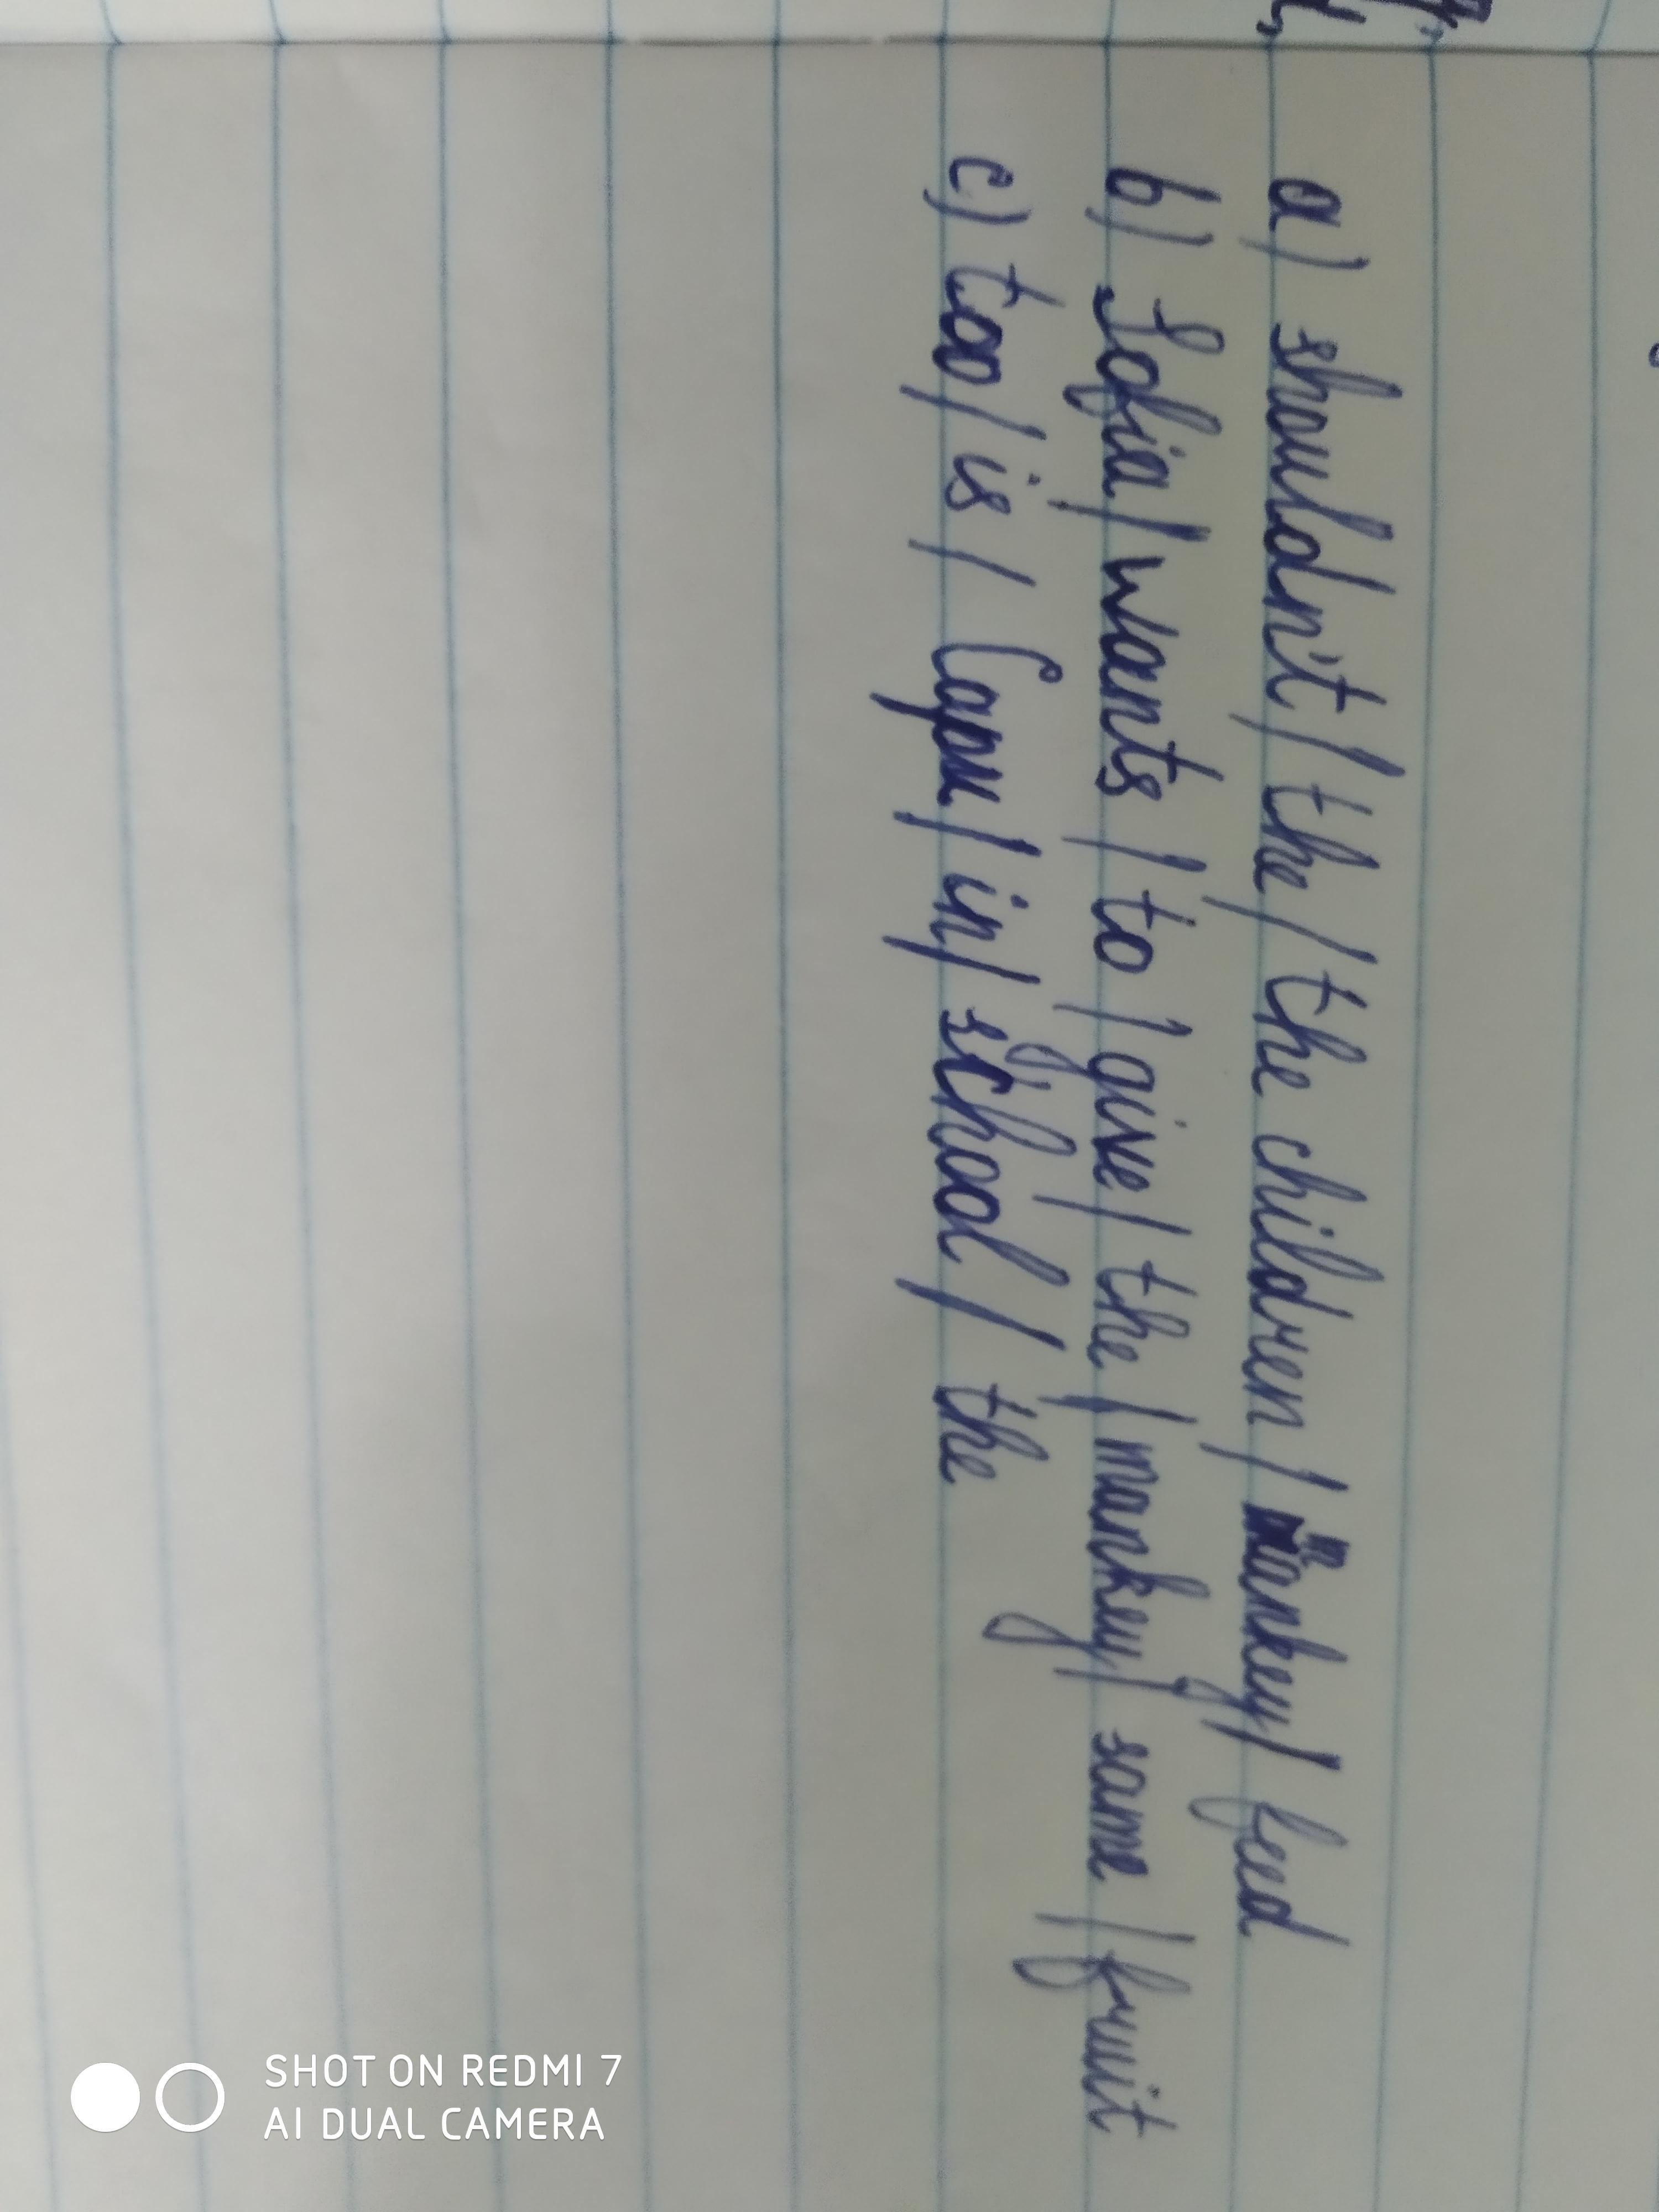 a) shouldn't / the / the children / monkey / feed
b) Sofia / wants / to / give / the / monkey / some / fruit
c) too / is / / in / school / the
SHOT ON REDMI 7
AI DUAL CAMERA